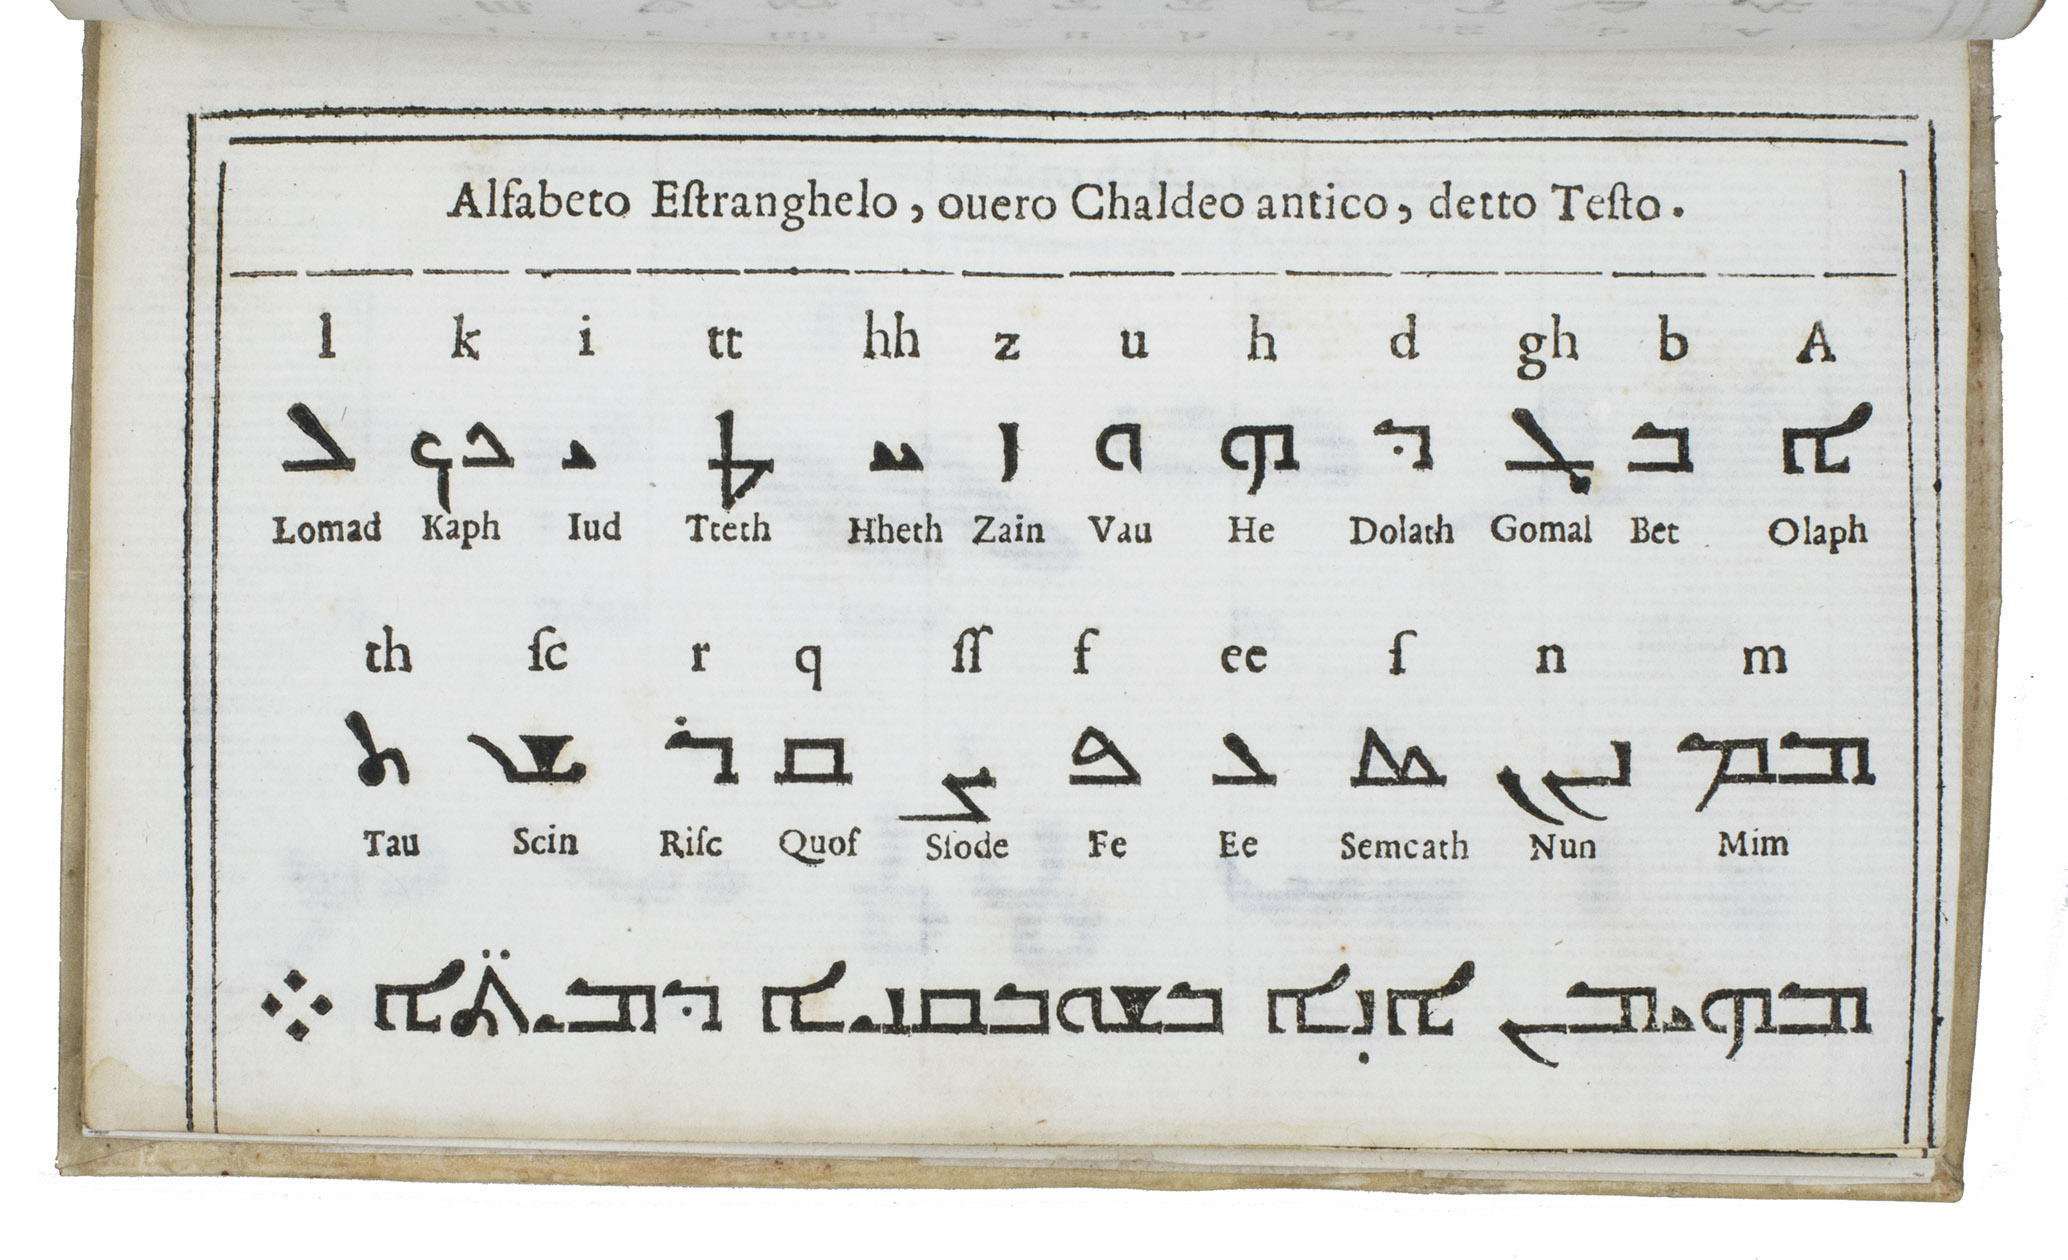 Alfabeto Eſtranghelo, ouero Chaldeo antico, detto Teſto.
l k i tt hh z u h d gh b A
ܐ ܒ ܓ ܕ ܗ ܘ ܙ ܚ ܛ ܝ ܟܟ ܠ
Lomad Kaph Iud Tteth Hheth Zain Vau He Dolath Gomal Bet Olaph
th ſc r q ſſ f ee ſ n m
ܡܡ ܢܢ ܣ ܥ ܦ ܨ ܩ ܪ ܫ ܬ
Tau Scin Riſc Quof Sſode Fe Ee Semcath Nun Mim
ܡܗܝܡܢ ܐܢܐ ܒܫܘܒܩܢܝܐ ܕܡܝܬ̈ܐ ܀